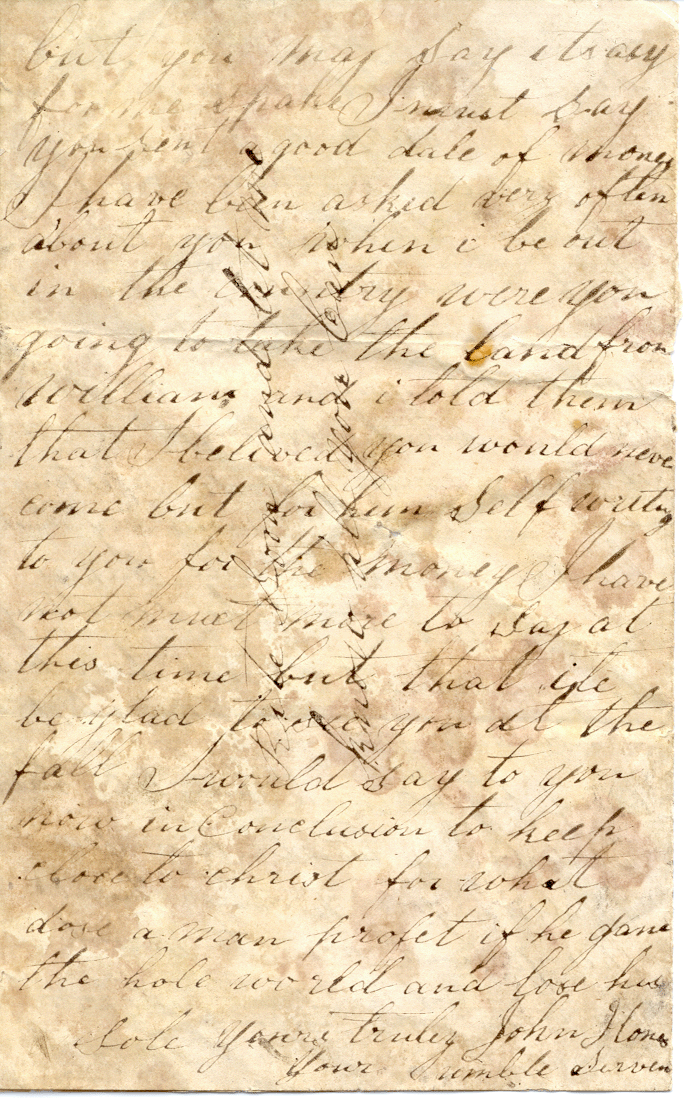 but you may say its asy
for me spake I must say
you sent a good dale of money
I have been asked very often
about you when i be out
in the cuntry were you
going to take the land from
William and i told them
that I belived you would never
come but for him self writing
to you for the money I have
not mutt more to say at
this time but that ile
be glad to see you at the
fall I would say to you
now in Conclusion to keep
close to christ for what
dose a man profet if he gane
the hole world and lose his
Sole yours truley John
your umble Serven
Write soon and let
you